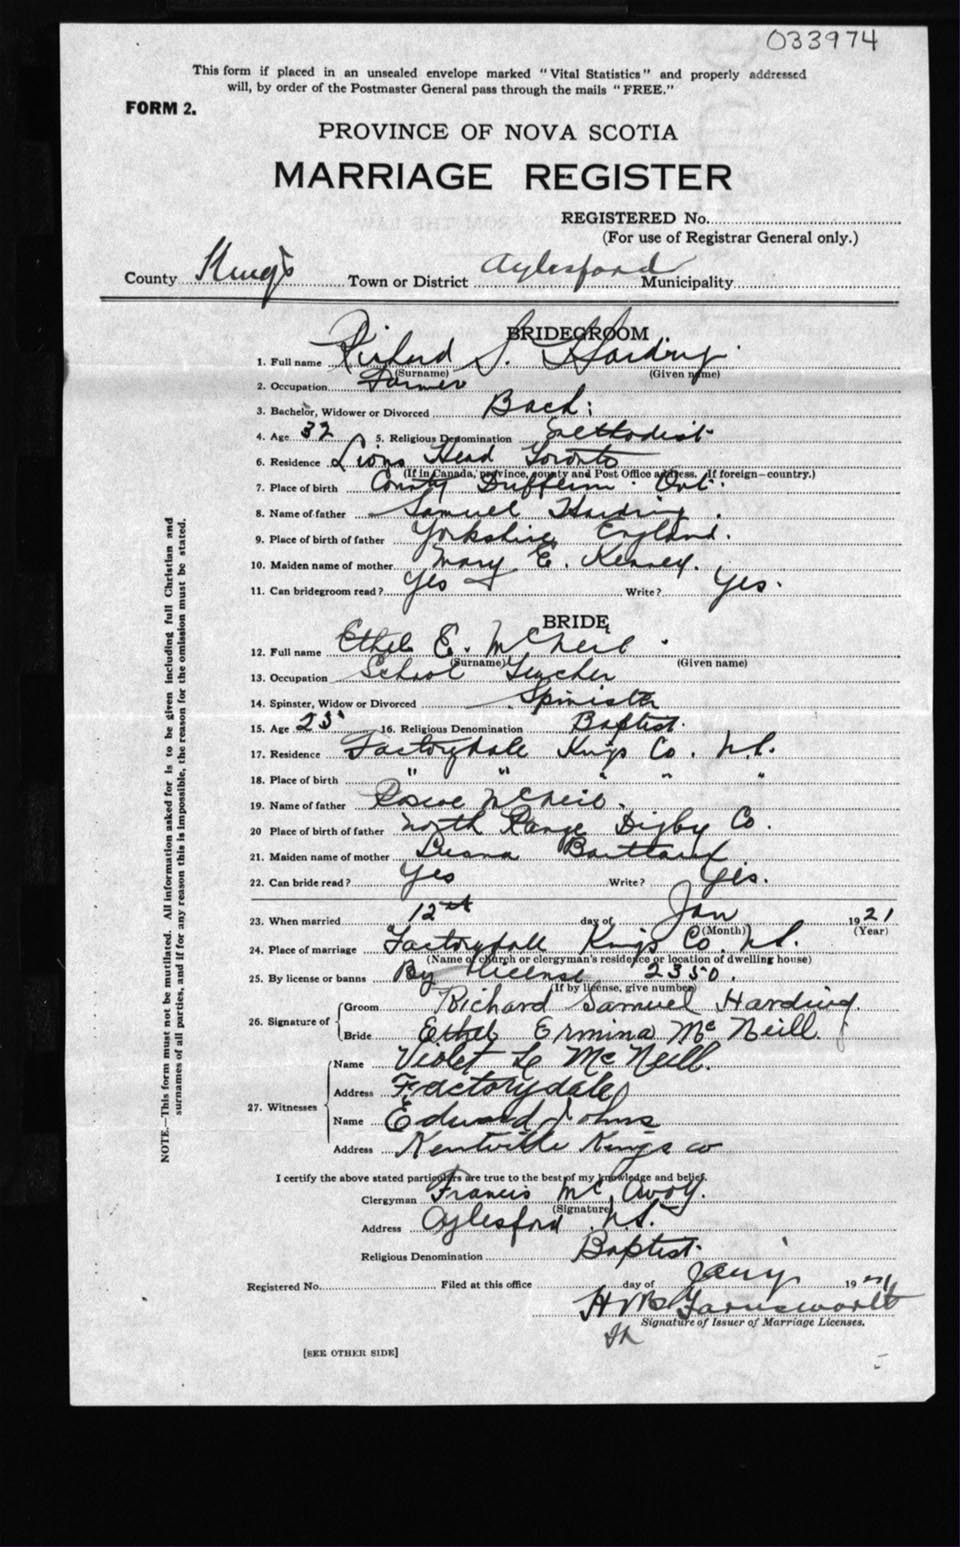 033974
This form if placed in an unsealed envelope marked "Vital Statistics" and properly addressed
will, by order of the Postmaster General pass through the mails "FREE."
FORM 2.
PROVINCE OF NOVA SCOTIA
MARRIAGE REGISTER
REGISTERED No.
(For use of Registrar General only.)
County Kings Town or District Aylesford Municipality
BRIDEGROOM
1. Full name Richard S. Harding
(Surname) (Given name)
2. Occupation Farmer
3. Bachelor, Widower or Divorced Bach:
4. Age 32 5. Religious Denomination Methodist
6. Residence Lions Head Toronto
(If in Canada, province, county and Post Office address. If foreign—country.)
7. Place of birth County Dufferin. Ont.
8. Name of father Samuel Harding.
9. Place of birth of father Yorkshire England.
10. Maiden name of mother Mary E. Kenney.
11. Can bridegroom read? Yes Write? Yes.
BRIDE
12. Full name Ethel E. McNeil
(Surname) (Given name)
13. Occupation School Teacher
14. Spinster, Widow or Divorced Spinister
15. Age 23 16. Religious Denomination Baptist.
17. Residence Factorydale Kings Co. N.S.
18. Place of birth " " " " "
19. Name of father Roscoe McNeil.
20 Place of birth of father North Range Digby Co.
21. Maiden name of mother
22. Can bride read? Yes Write? Yes.
23. When married 12th day of Jan 1921
(Month) (Year)
24. Place of marriage Factorydale Kings Co. N.S.
(Name of church or clergyman's residence or location of dwelling house)
25. By license or banns By license 2350.
(If by license, give number)
26. Signature of
Groom Richard Samuel Harding.
Bride Ethel Ermina McNeill.
27. Witnesses
Name Violet L McNeill.
Address Factorydale
Name Edward Johns
Address Kentville Kings co
I certify the above stated particulars are true to the best of my knowledge and belief.
Clergyman Francis McAvoy.
(Signature)
Address Aylesford N.S.
Religious Denomination Baptist.
Registered No. Filed at this office day of Jany 1921
H V B Farnsworth
Signature of Issuer of Marriage Licenses.
[SEE OTHER SIDE]
NOTE.—This form must not be mutilated. All information asked for is to be given including full Christian and
surnames of all parties, and if for any reason this is impossible, the reason for the omission must be stated.